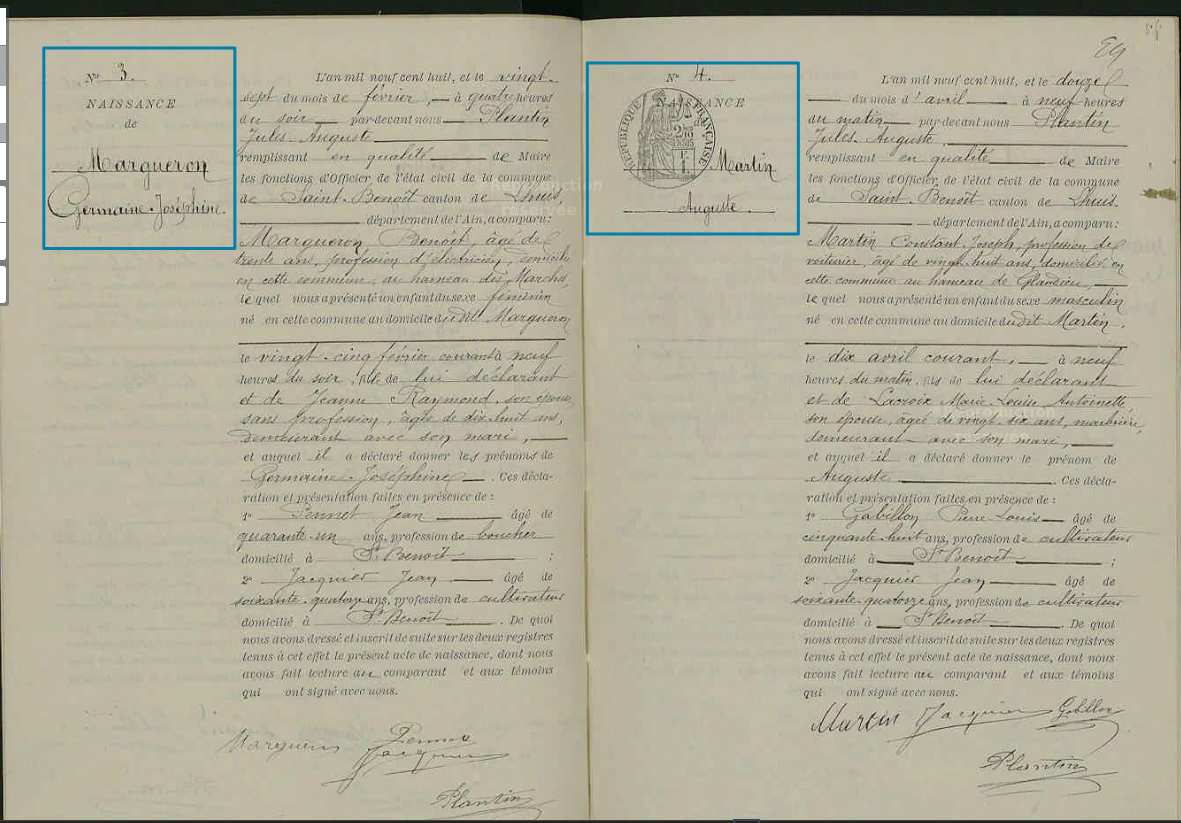 Nº 3.
NAISSANCE
de
Margueron
Germaine-Joséphine.
L'an mil neuf cent huit, et le vingt-
sept du mois de février, à quatre heures
du soir par-devant nous Plantin
Jules-Auguste
remplissant en qualité de Maire
les fonctions d'Officier de l'état civil de la commune
de Saint-Benoît canton de Lhuis,
département de l'Ain, a comparu:
Margueron, Benoît, âgé de
trente ans, profession d'électricien, domicilié
en cette commune, au hameau des Marches,
lequel nous a présenté un enfant du sexe féminin
né en cette commune au domicile dudit Margueron
le vingt-cinq février courant à neuf
heures du soir, fils de lui déclarant
et de Jeanne Raymond, son épouse,
sans profession, âgée de dix-huit ans,
demeurant avec son mari,
et auquel il a déclaré donner les prénoms de
Germaine-Joséphine. Ces décla-
ration et présentation faites en présence de:
1º Pennet Jean âgé de
quarante-un ans, profession de boucher
domicilié à St Benoît;
2º Jacquier Jean âgé de
soixante-quatorze ans, profession de cultivateur
domicilié à St Benoît. De quoi
nous avons dressé et inscrit de suite sur les deux registres
tenus à cet effet le présent acte de naissance, dont nous
avons fait lecture au comparant et aux témoins
qui ont signé avec nous.
Margueron
Jacquier
Plantin
59
Nº 4.
NAISSANCE
RÉPUBLIQUE FRANÇAISE
Martin
Auguste.
L'an mil neuf cent huit, et le douze
du mois d'avril à neuf heures
du matin par-devant nous Plantin
Jules-Auguste
remplissant en qualité de Maire
les fonctions d'Officier de l'état civil de la commune
de Saint-Benoît canton de Lhuis
département de l'Ain, a comparu:
Martin Constant-Joseph, profession de
voiturier, âgé de vingt-huit ans, domicilié en
cette commune au hameau de Glandieu,
lequel nous a présenté un enfant du sexe masculin
né en cette commune au domicile dudit Martin.
le dix avril courant, à neuf
heures du matin, fils de lui déclarant
et de Lacroix Marie-Louise Antoinette,
son épouse, âgé de vingt-six ans,
demeurant avec son mari,
et auquel il a déclaré donner le prénom de
Auguste. Ces décla-
ration et présentation faites en présence de:
1º Gabillon Pierre-Louis âgé de
cinquante-huit ans, profession de cultivateur
domicilié à St Benoît;
2º Jacquier Jean âgé de
soixante-quatorze ans, profession de cultivateur
domicilié à St Benoît. De quoi
nous avons dressé et inscrit de suite sur les deux registres
tenus à cet effet le présent acte de naissance, dont nous
avons fait lecture au comparant et aux témoins
qui ont signé avec nous.
Martin Jacquier Gabillon
Plantin